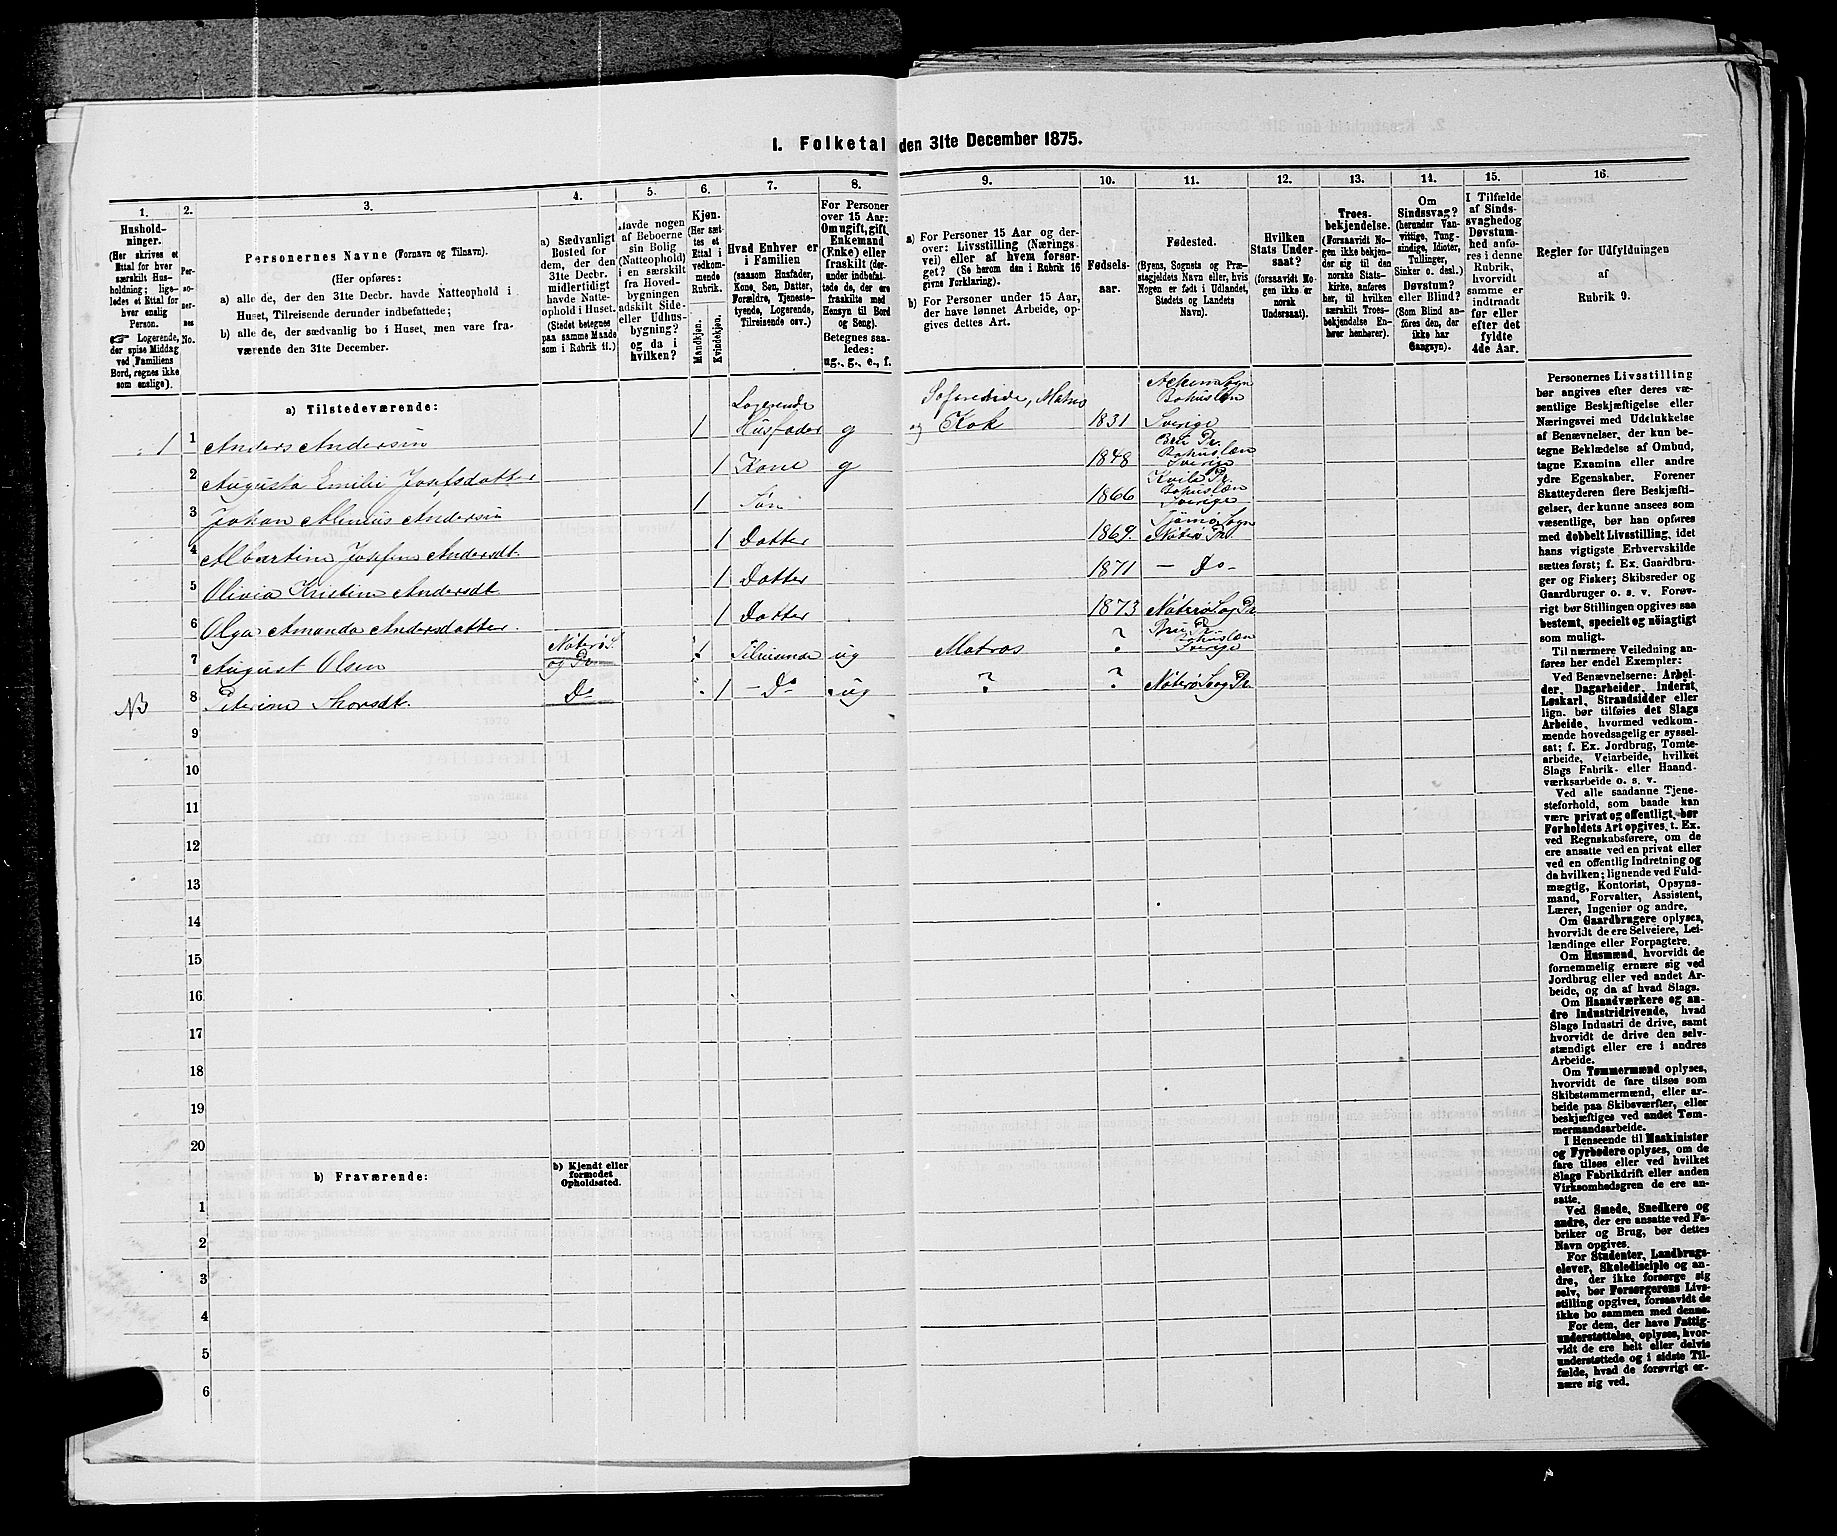 1. Folketal den 31te December 1875.
1.
2.
3.
4.
5.
6.
7.
8.
9.
10.
11.
12.
13.
14.
15.
16.
Hushold-
ninger.
(Her skrives et
Ettal for hver
særskilt Hus-
holdning; lige-
ledes et Ettal for
hver enslig
Person.
☞ Logerende,
der spise Middag
ved Familiens
Bord, regnes ikke
som enslige).
Per-
so-
ner-
nes
No.
Personernes Navne (Fornavn og Tilnavn).
(Her opføres:
a) alle de, der den 31te Decbr. havde Natteophold i
Huset, Tilreisende derunder indbefattede;
b) alle de, der sædvanlig bo i Huset, men vare fra-
værende den 31te December.
a) Sædvanligt
Bosted for
dem, der den
31te Decbr.
midlertidigt
havde Natte-
ophold i Huset.
(Stedet betegnes
paa samme Maade
som i Rubrik 11.)
Havde nogen
af Beboerne
sin Bolig
(Natteophold)
i en særskilt
fra Hoved-
bygningen
adskilt Side-
eller Udhus-
bygning?
og da i
hvilken?
Kjøn.
(Her sæt-
tes et
Ettal i
vedkom-
mende
Rubrik.
Mandkjøn.
Kvindekjøn.
Hvad Enhver er
i Familien
(saasom Husfader,
Kone, Søn, Datter,
Forældre, Tjeneste-
tyende, Logerende,
Tilreisende osv.)
For Personer
over 15 Aar:
Om ugift, gift,
Enkemand
(Enke) eller
fraskilt (der-
under indbefat-
tede de, der ere
fraskilte med
Hensyn til Bord
og Seng).
Betegnes saa-
ledes:
ug., g., e., f.
a) For Personer 15 Aar og der-
over: Livsstilling (Nærings-
vei) eller af hvem forsør-
get? (Se herom den i Rubrik 16
givne Forklaring).
b) For Personer under 15 Aar,
der have lønnet Arbeide, op-
gives dettes Art.
Fødsels-
aar.
Fødested.
(Byens, Sognets og Præ-
stegjeldets Navn eller, hvis
Nogen er født i Udlandet,
Stedets og Landets
Navn).
Hvilken
Stats Under-
saat?
(forsaavidt No-
gen ikke er
norsk
Undersaat).
Troes-
bekjendelse.
(Forsaavidt No-
gen ikke bekjen-
der sig til den
norske Stats-
kirke, anføres
her, til hvilken
særskilt Troes-
bekjendelse En-
hver henhører).
Om
Sindssvag?
(herunder Van-
vittige, Tung-
sindige, Idioter,
Tullinger,
Sinker o. desl.)
Døvstum?
eller Blind?
(Som Blind an-
føres den, der
ikke har
Gangsyn).
I Tilfælde
af Sinds-
svaghed og
Døvstum-
hed anfø-
res i denne
Rubrik,
hvorvidt
samme er
indtraadt
før eller
efter det
fyldte
4de Aar.
Regler for Udfyldningen
af
Rubrik 9.
a) Tilstedeværende:
1 1 Anders Andersen 1 Logerende Husfader g Søfarende, Matros og Kok 1831 Sogn Bohuslen Sverige
2 Augusta Emilie Josefsdatter 1 Kone g 1848 Bru Pr. Bohuslæn Sverige
3 Johan Andersen 1 Søn 1866 Kville Pr. Bohuslæn Sverige
4 Albertine Josefine Andersdt. 1 Datter 1869. Tjømø Sogn Nøterø Pr.
5 Olivia Kristine Andersdt 1 Datter 1871 – Do –
6 Olga Amanda Andersdatter. 1 Datter 1873 Nøterø S. og Pr.
7 August Olsen Nøterø S. og Pr. 1 Tilreisende ug Matros ? Bru Pr. Bohuslæn Sverige
NB 8 Petrine Thorsdt. Do 1 – Do ug ? ? Nøterø S. og Pr.
9
10
11
12
13
14
15
16
17
18
19
20
b) Fraværende:
b) Kjendt eller
formodet
Opholdssted.
1
2
3
4
5
6
Personernes Livsstilling
bør angives efter deres væ-
sentlige Beskjæftigelse eller
Næringsvei med Udelukkelse
af Benævnelser, der kun be-
tegne Beklædelse af Ombud,
tagne Examina eller andre
ydre Egenskaber. Forener
Skatteyderen flere Beskjæfti-
gelser, der kunne ansees som
væsentlige, bør han opføres
med dobbelt Livsstilling, idet
hans vigtigste Erhvervskilde
sættes først; f. Ex. Gaardbru-
ger og Fisker; Skibsreder og
Gaardbruger o. s. v. Forøv-
rigt bør Stillingen opgives saa
bestemt, specielt og nöiagtigt
som muligt.
Til nærmere Veiledning an-
føres her endel Exempler:
Ved Benævnelserne: Arbei-
der, Dagarbeider, Inderst,
Løskarl, Strandsidder eller
lign. bør tilføies det Slags
Arbeide, hvormed vedkom-
mende hovedsagelig er syssel-
sat; f. Ex. Jordbrug, Tomte-
arbeide, Veiarbeide, hvilket
Slags Fabrik- eller Haand-
værksarbeide o. s. v.
Ved alle saadanne Tjene-
steforhold, som baade kan
være privat og offentligt, bør
Forholdets Art opgives, t. Ex.
ved Regnskabsførere, om de
ere ansatte ved en privat eller
ved en offentlig Indretning og
da hvilken; ligned ved Fuld-
mægtig, Kontorist, Opsyns-
mand, Forvalter, Assistent,
Lærer, Ingeniør og andre.
Om Gaardbrugere oplyses,
hvorvidt de ere Selveiere, Lei-
lændinge eller Forpagtere.
Om Husmænd, hvorvidt de
fornemmelig ernære sig ved
Jordbrug eller ved andet Ar-
beide, og da af hvad Slags.
Om Haandværkere og an-
dre Industridrivende, hvad
Slags Industri de drive, samt
hvorvidt de drive den selv-
stændigt eller ere i andres
Arbeide.
Om Tømmermænd oplyses,
hvorvidt de fare tilsøs som
Skibstømmermænd, eller ar-
beide paa Skibsværfter, eller
beskjæftiges ved andet Tøm-
mermandsarbeide.
I Henseende til Maskinister
og Fyrbødere oplyses, om de
fare tilsøs eller ved hvilket
Slags Fabrikdrift eller anden
Virksomhedsgren de ere an-
satte.
Ved Smede, Snedkere og
andre, der ere ansatte ved Fa-
briker og Brug, bør dettes
Navn opgives.
For Studenter, Landbrugs-
elever, Skoledisciple og an-
dre, der ikke forsørge sig
selv, bør Forsørgerens Livs-
stilling opgives, forsaavidt de
ikke bo sammen med denne.
For dem, der have Fattig-
understøttelse, oplyses, hvor-
vidt de ere helt eller delvis
understøttede og i sidste Til-
fælde, hvad de forøvrigt er-
nære sig ved.